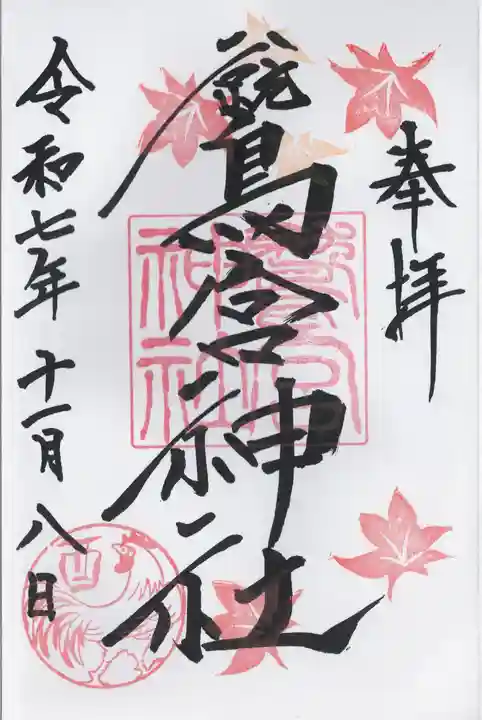 奉拝
鷲宮神社
令和七年十一月八日
鷲宮
神社
酉